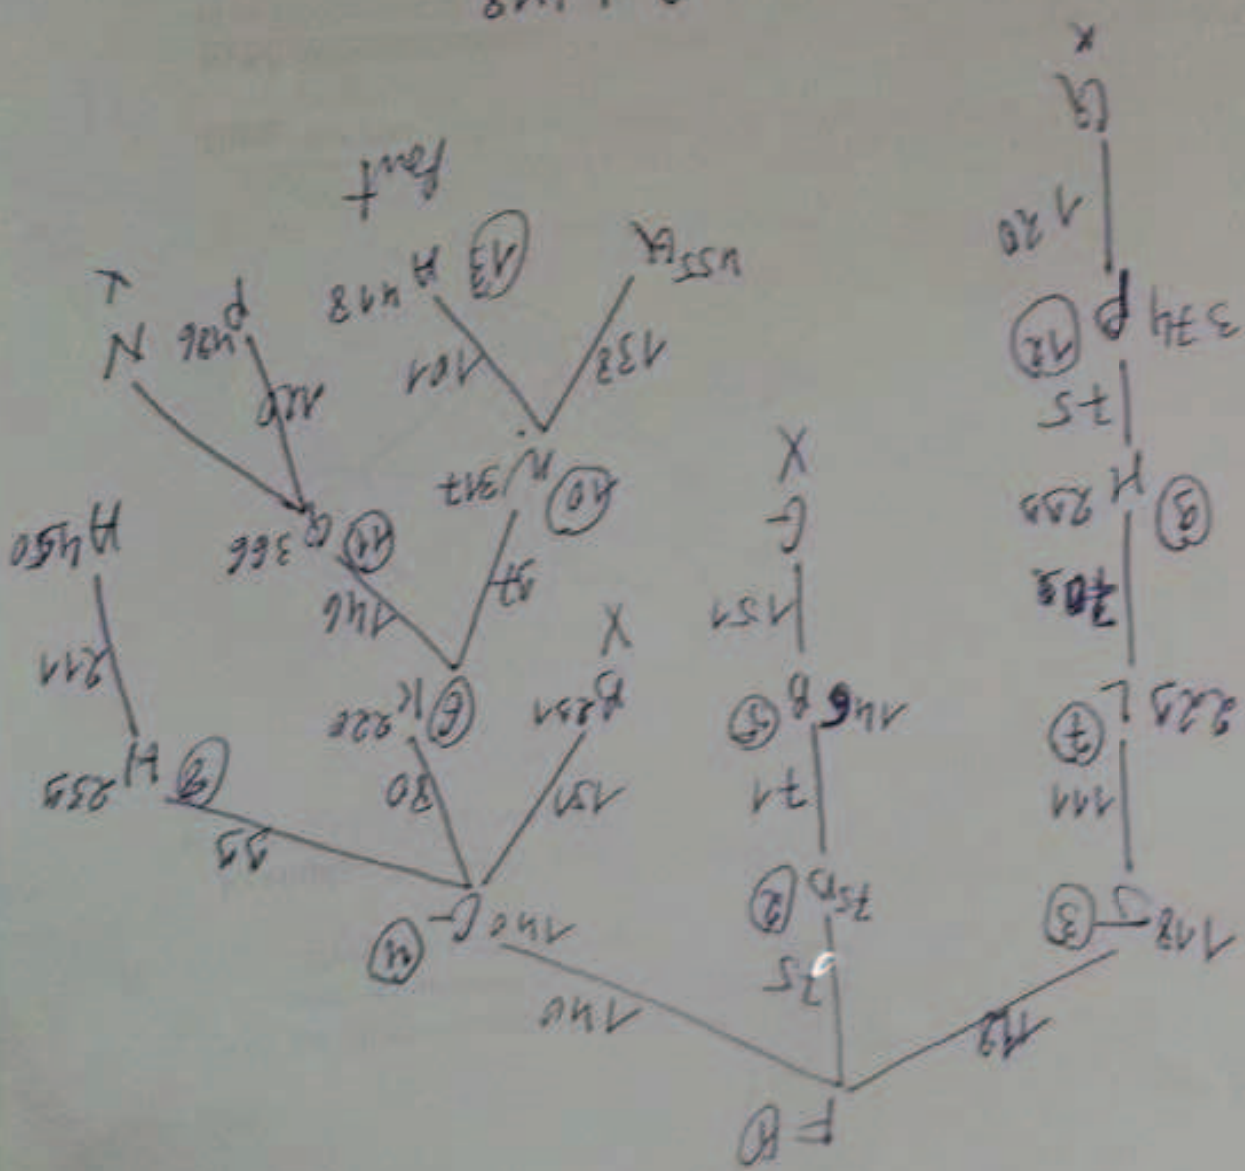 F 1
118 75 140
118 J 3 75 D 2 140 G 4
111 71 151 80 99
229 L 7 146 B 5 B 291 X K 220 6 H 239 8
70 151 97 146 211
299 M 9 G X N 317 10 Q 366 11 A 450
75 138 101 120
374 P 12 455 Q A 418 13 P 486 N X
120
Q
X